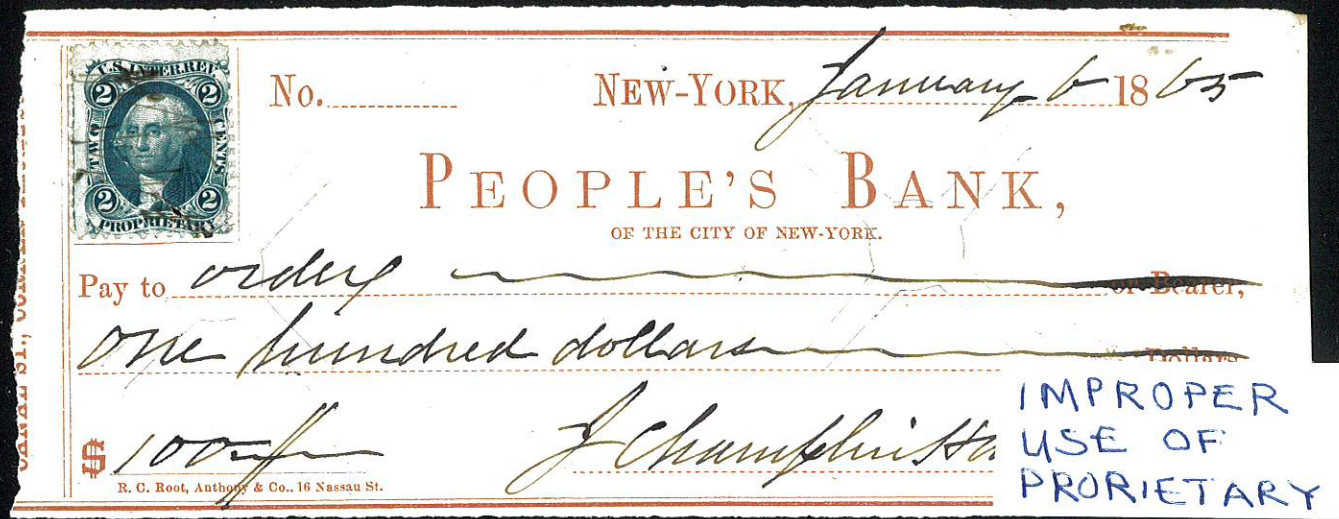 U.S. INTER. REV.
2 2
TWO CENTS
2 2
PROPRIETARY
No. NEW-YORK, January 6 1865
PEOPLE'S BANK,
OF THE CITY OF NEW-YORK.
Pay to order or Bearer,
One hundred dollars Dollars
$ 100
R. C. Root, Anthony & Co., 16 Nassau St.
J Champlin
IMPROPER
USE OF
PRORIETARY
CANAL ST.,